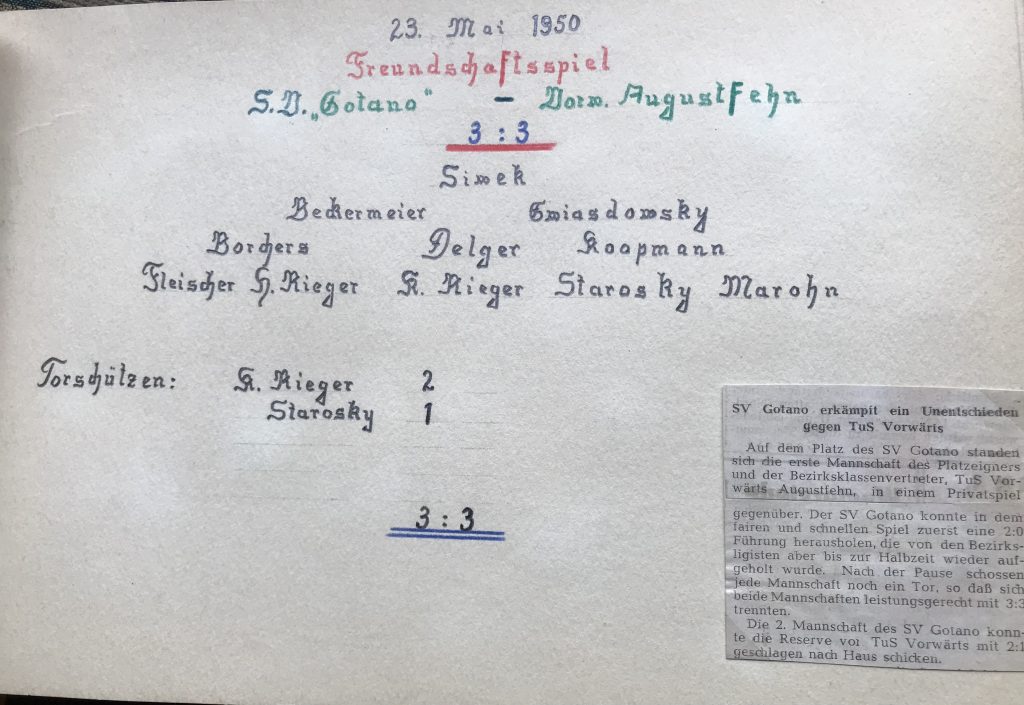 23. Mai 1950
Freundschaftsspiel
S.V. „Gotano" – Vorw. Augustfehn
3 : 3
Simek
Beckermeier Gwiasdowsky
Borchers Delger Koopmann
Fleischer H. Rieger K. Rieger Starosky Marohn
Torschützen: K. Rieger 2
Starosky 1
3 : 3
SV Gotano erkämpft ein Unentschieden
gegen TuS Vorwärts
Auf dem Platz des SV Gotano standen
sich die erste Mannschaft des Platzeigners
und der Bezirksklassenvertreter, TuS Vor-
wärts Augustfehn, in einem Privatspiel
gegenüber. Der SV Gotano konnte in dem
fairen und schnellen Spiel zuerst eine 2:0
Führung herausholen, die von den Bezirks-
ligisten aber bis zur Halbzeit wieder auf-
geholt wurde. Nach der Pause schossen
jede Mannschaft noch ein Tor, so daß sich
beide Mannschaften leistungsgerecht mit 3:3
trennten.
Die 2. Mannschaft des SV Gotano konn-
te die Reserve vor TuS Vorwärts mit 2:1
geschlagen nach Haus schicken.